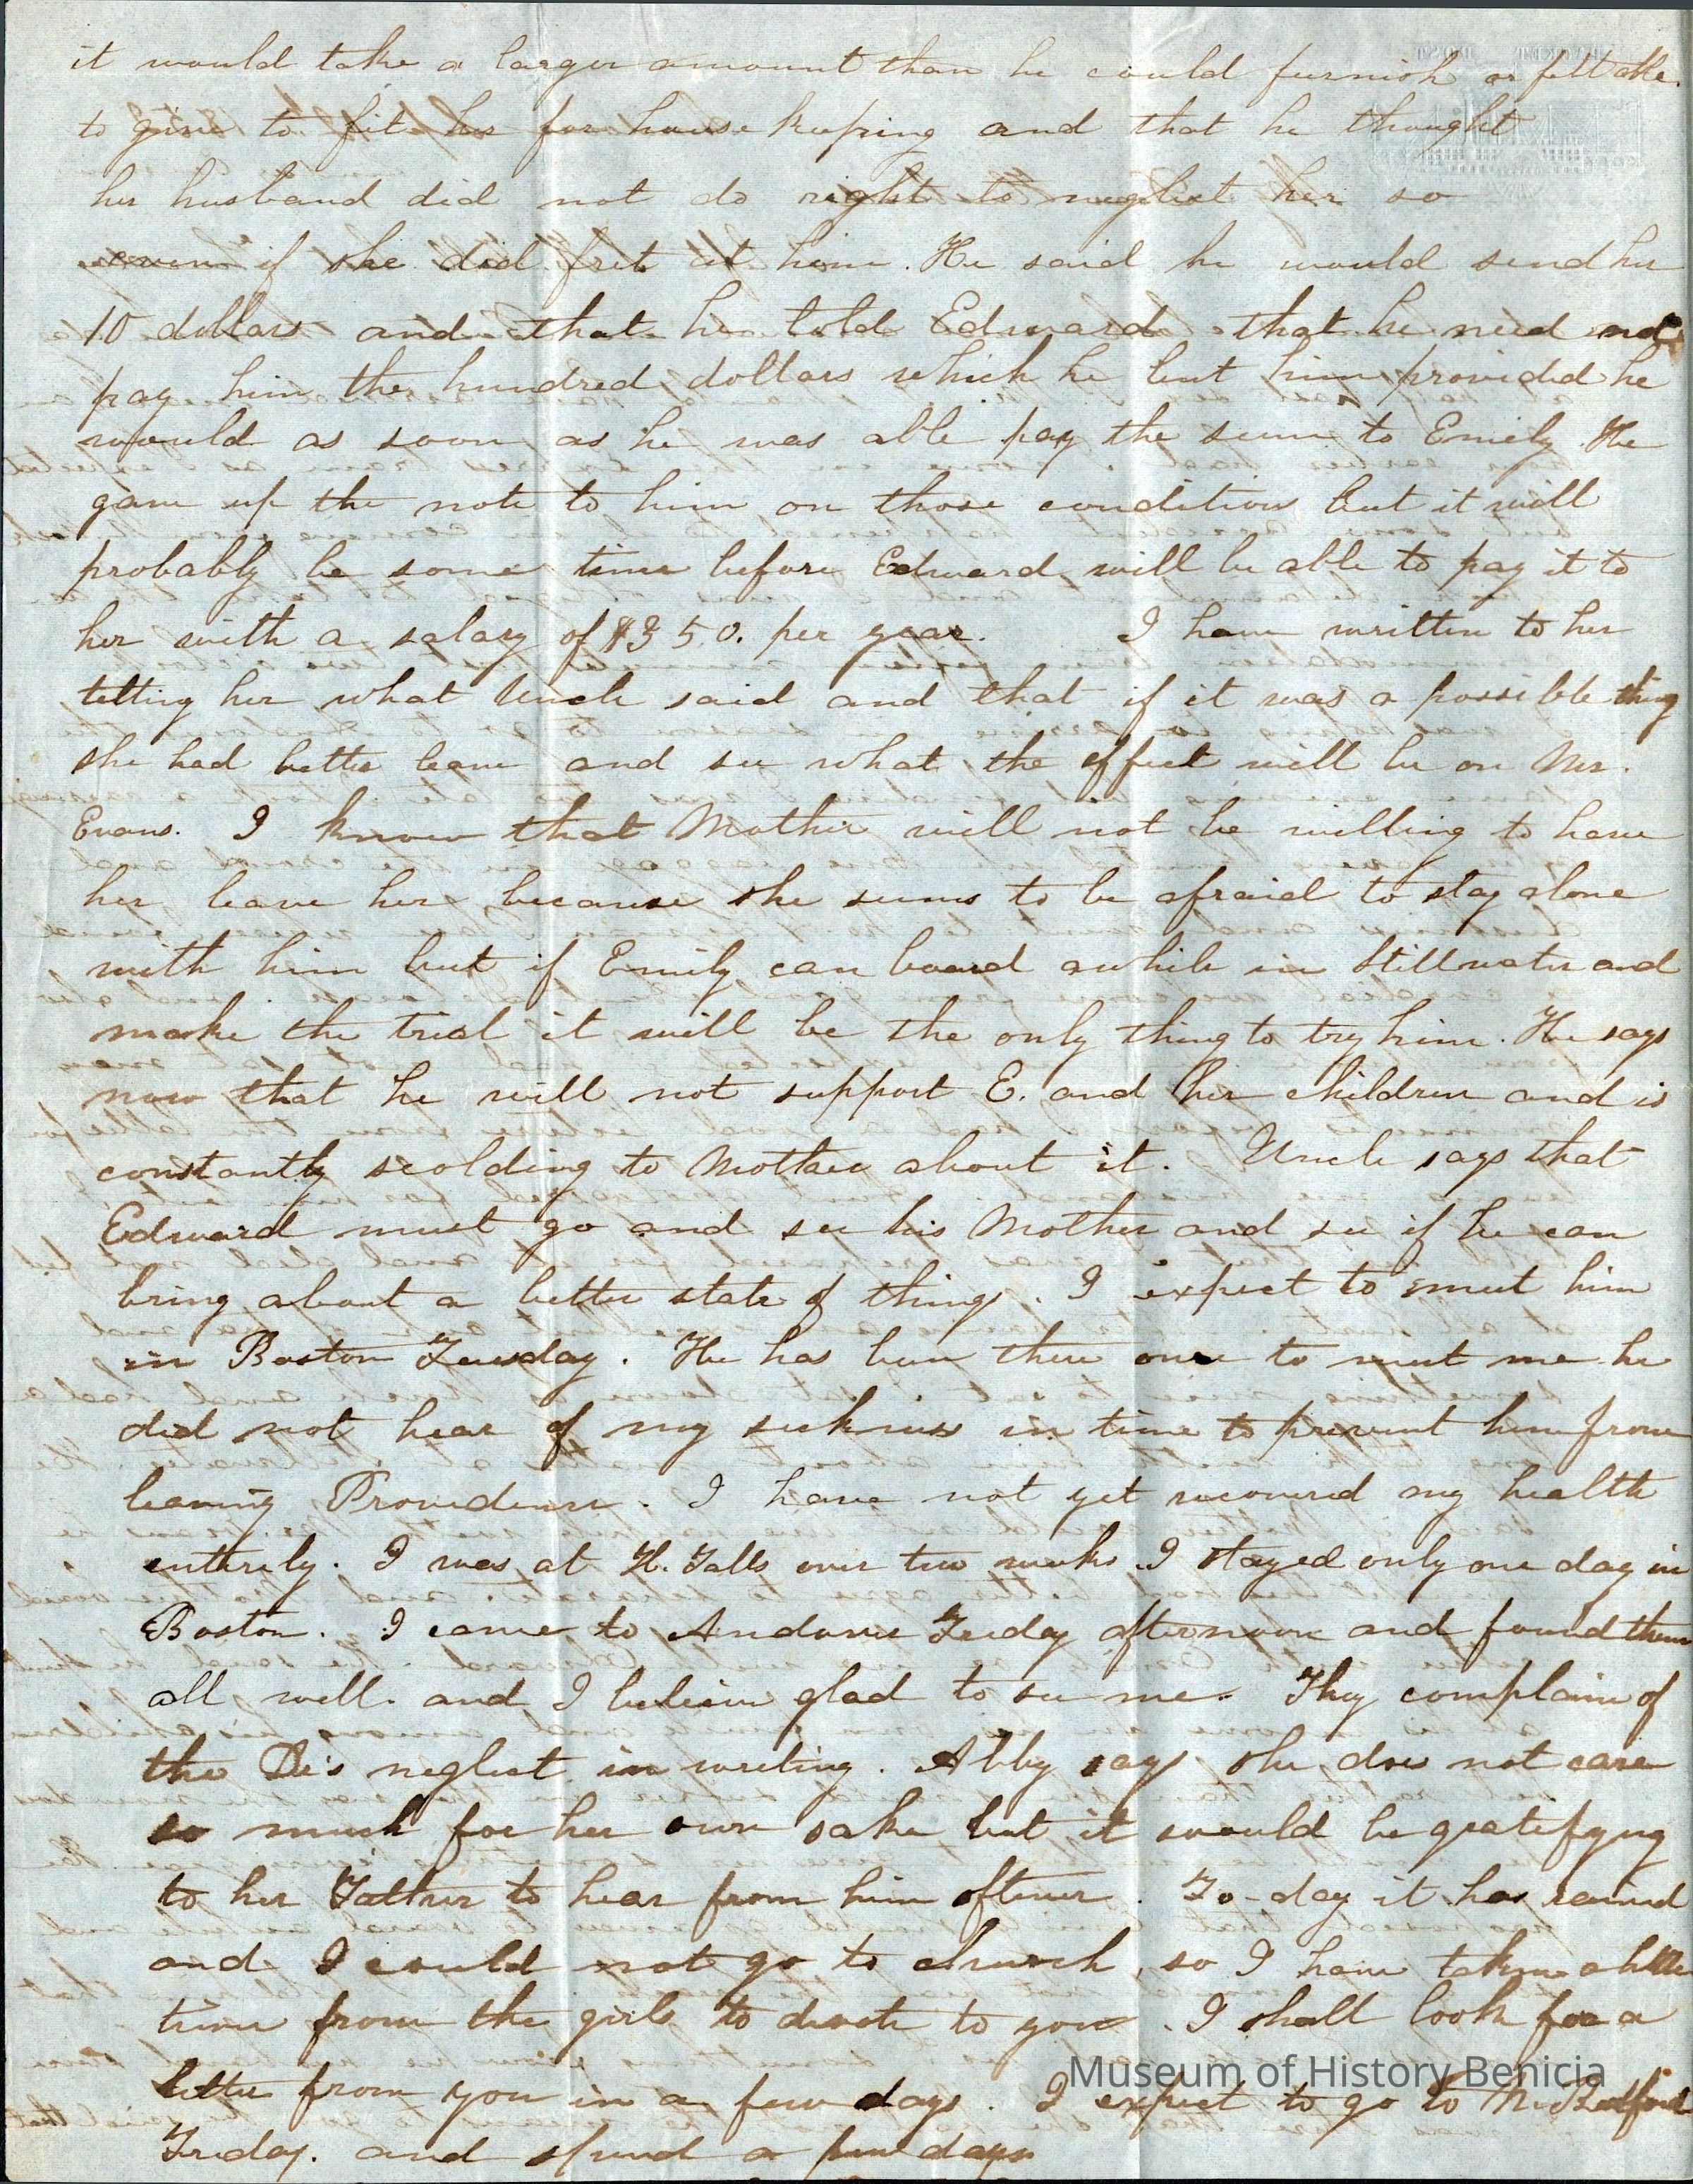 it would take a larger amount than he could furnish or felt able
to give to fit her for house keeping and that he thought
her husband did not do right to neglect her so
even if she did fret at him. He said he would send her
10 dollars and that he told Edward that he need not
pay him the hundred dollars which he lent him provided he
would as soon as he was able pay the sum to Emily. He
gave up the note to him on those condition but it will
probably be some time before Edward will be able to pay it to
her with a salary of $350. per year. I have written to her
telling her what Uncle said and that if it was a possible thing
she had better leave and see what the effect will be on Mr.
Evans. I know that Mother will not be willing to have
her leave her because she seems to be afraid to stay alone
with him but if Emily can board awhile in Stillwater and
make the trial it will be the only thing to try him. He says
now that he will not support E. and her children and is
constantly scolding to Mother about it. Uncle says that
Edward must go and see his Mother and see if he can
bring about a better state of things. I expect to meet him
in Boston Tuesday. He has been there once to meet me he
did not hear of my sickness in time to prevent him from
leaving Providence. I have not yet recovered my health
entirely. I was at H. Falls over two weeks. I stayed only one day in
Boston. I came to Andover Friday afternoon and found them
all well. and I believe glad to see me. They complain of
the Dr's neglect in writing. Abby says she does not care
so much for her own sake but it would be gratifyng
to her Father to hear from him oftener. To-day it has rained
and I could not go to church, so I have taken a little
time from the girls to devote to you. I shall look for a
letter from you in a few days. I expect to go to N. Bedford
Friday. and spend a few days
Museum of History Benicia